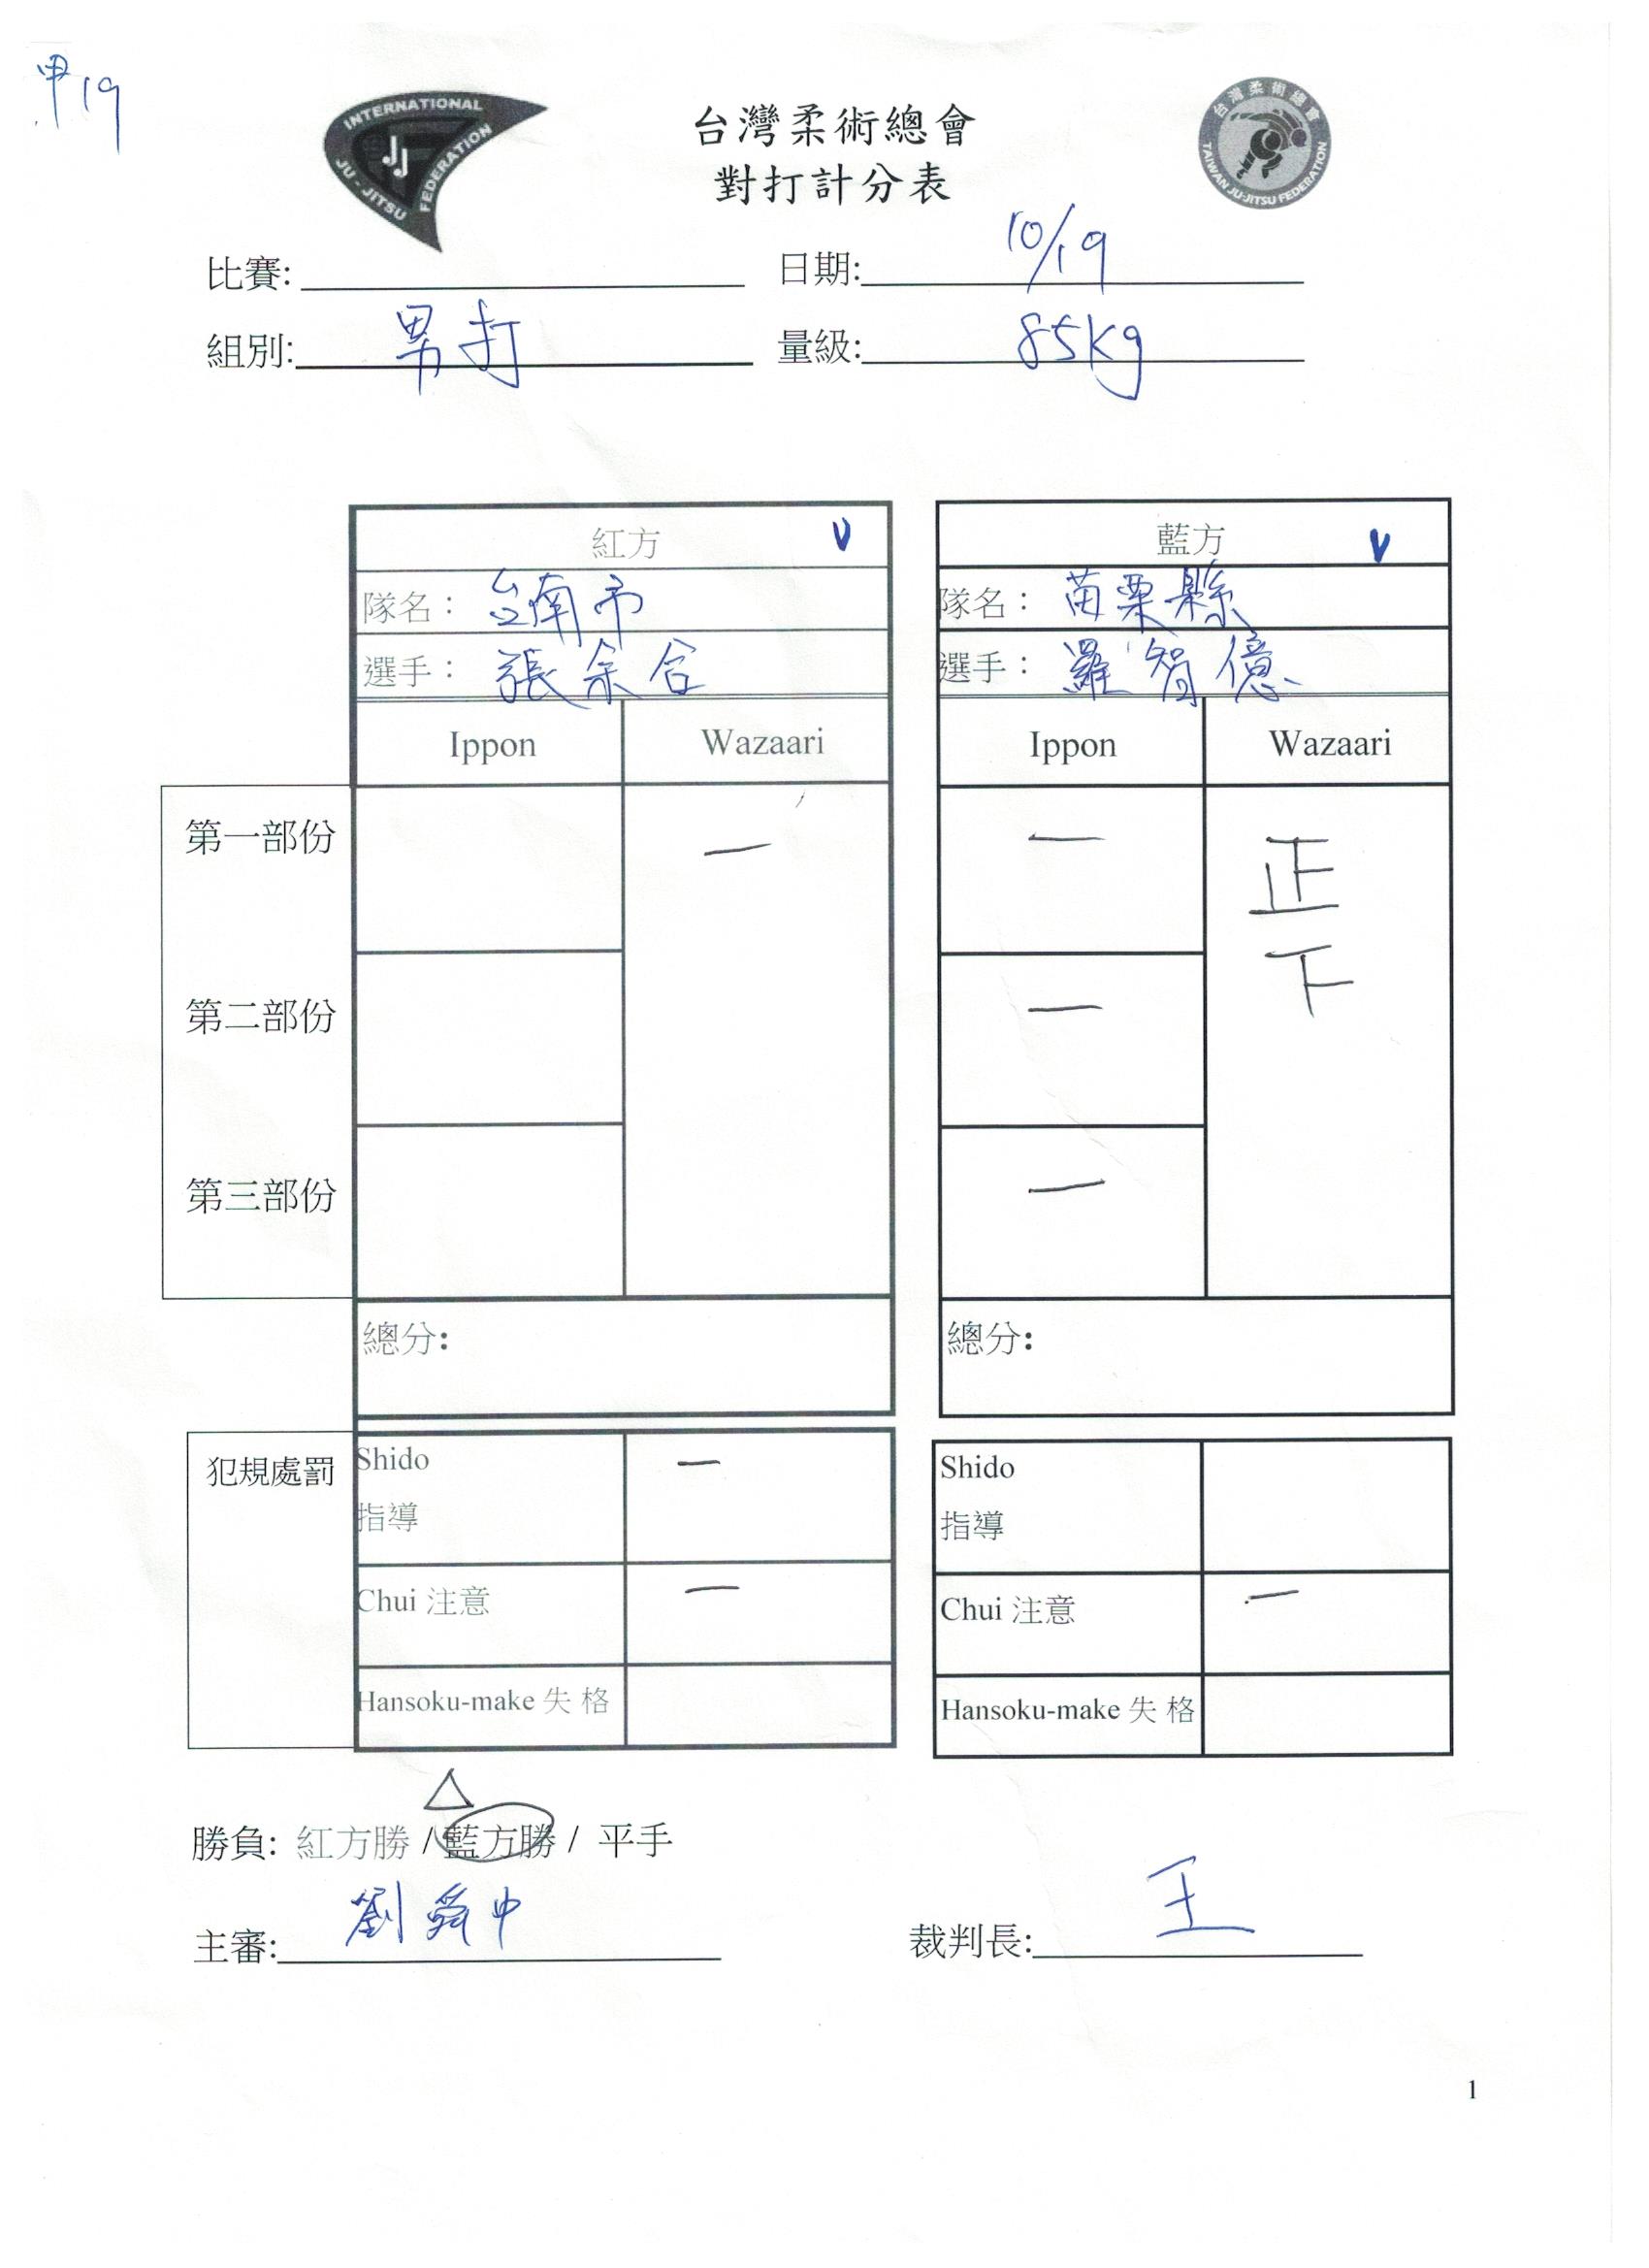 甲19
INTERNATIONAL
JU-JITSU
FEDERATION
JJ
台灣柔術總會
對打計分表
台灣柔術總會
TAIWAN JU-JITSU FEDERATION
比賽: 日期: 10/19
組別: 男打 量級: 85kg
紅方 V 藍方 V
隊名： 台南市 隊名： 苗栗縣
選手： 張余合 選手： 羅智億
Ippon Wazaari Ippon Wazaari
第一部份 一 一 正
第二部份 一 下
第三部份 一
總分: 總分:
犯規處罰 Shido 一 Shido
指導 指導
Chui 注意 一 Chui 注意 一
Hansoku-make 失 格 Hansoku-make 失 格
勝負: 紅方勝 / 藍方勝 / 平手
主審: 劉舜中 裁判長: 王
1